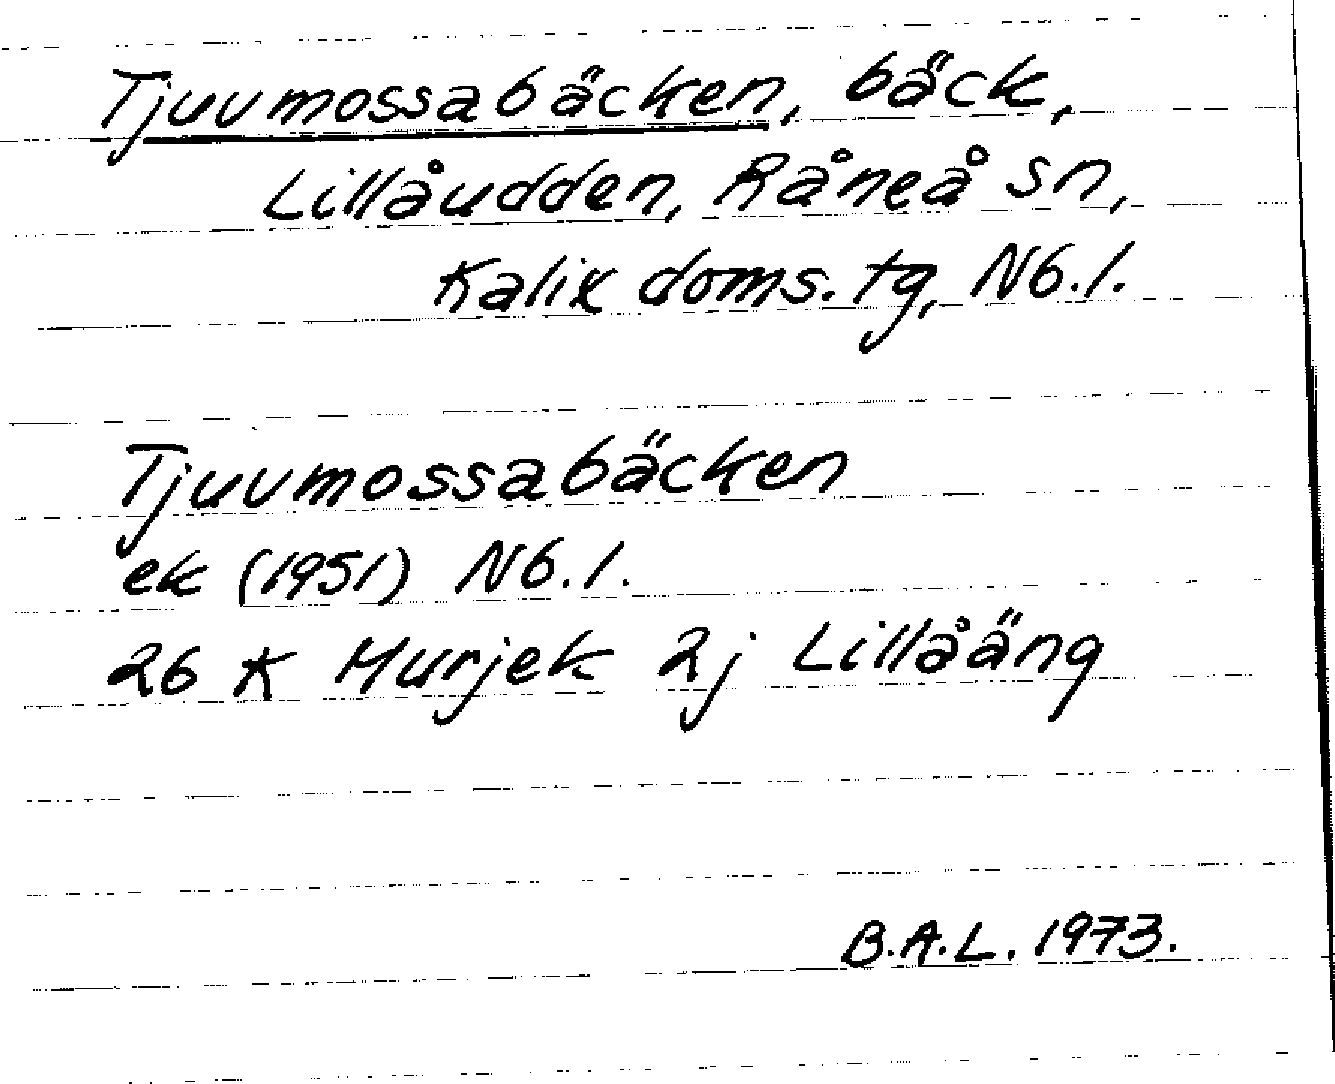 Tjuvmossabäcken, bäck,
Lillåudden, Råneå sn,
Kalix doms. tg, Nb. l.
Tjuvmossabäcken
ek (1951) Nb. l.
26 K Murjek 2j Lillåäng
B.A.L. 1973.